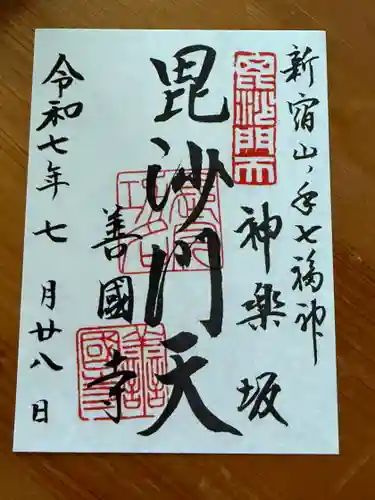 新宿山ノ手七福神
毘沙門天
神楽坂
毘沙門天
善國寺
善國寺
令和七年七月廿八日